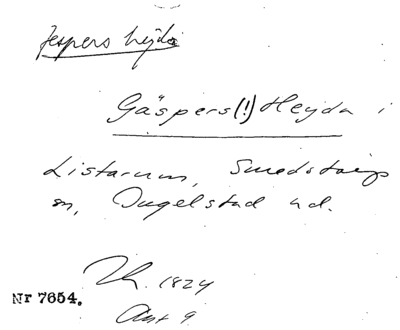 Jespers hejda
Gäspers (!) Heyda i
Listarum, Smedstorps
sn, Ingelstad hd.
Th. 1824
Nr 7654.
Ant 9